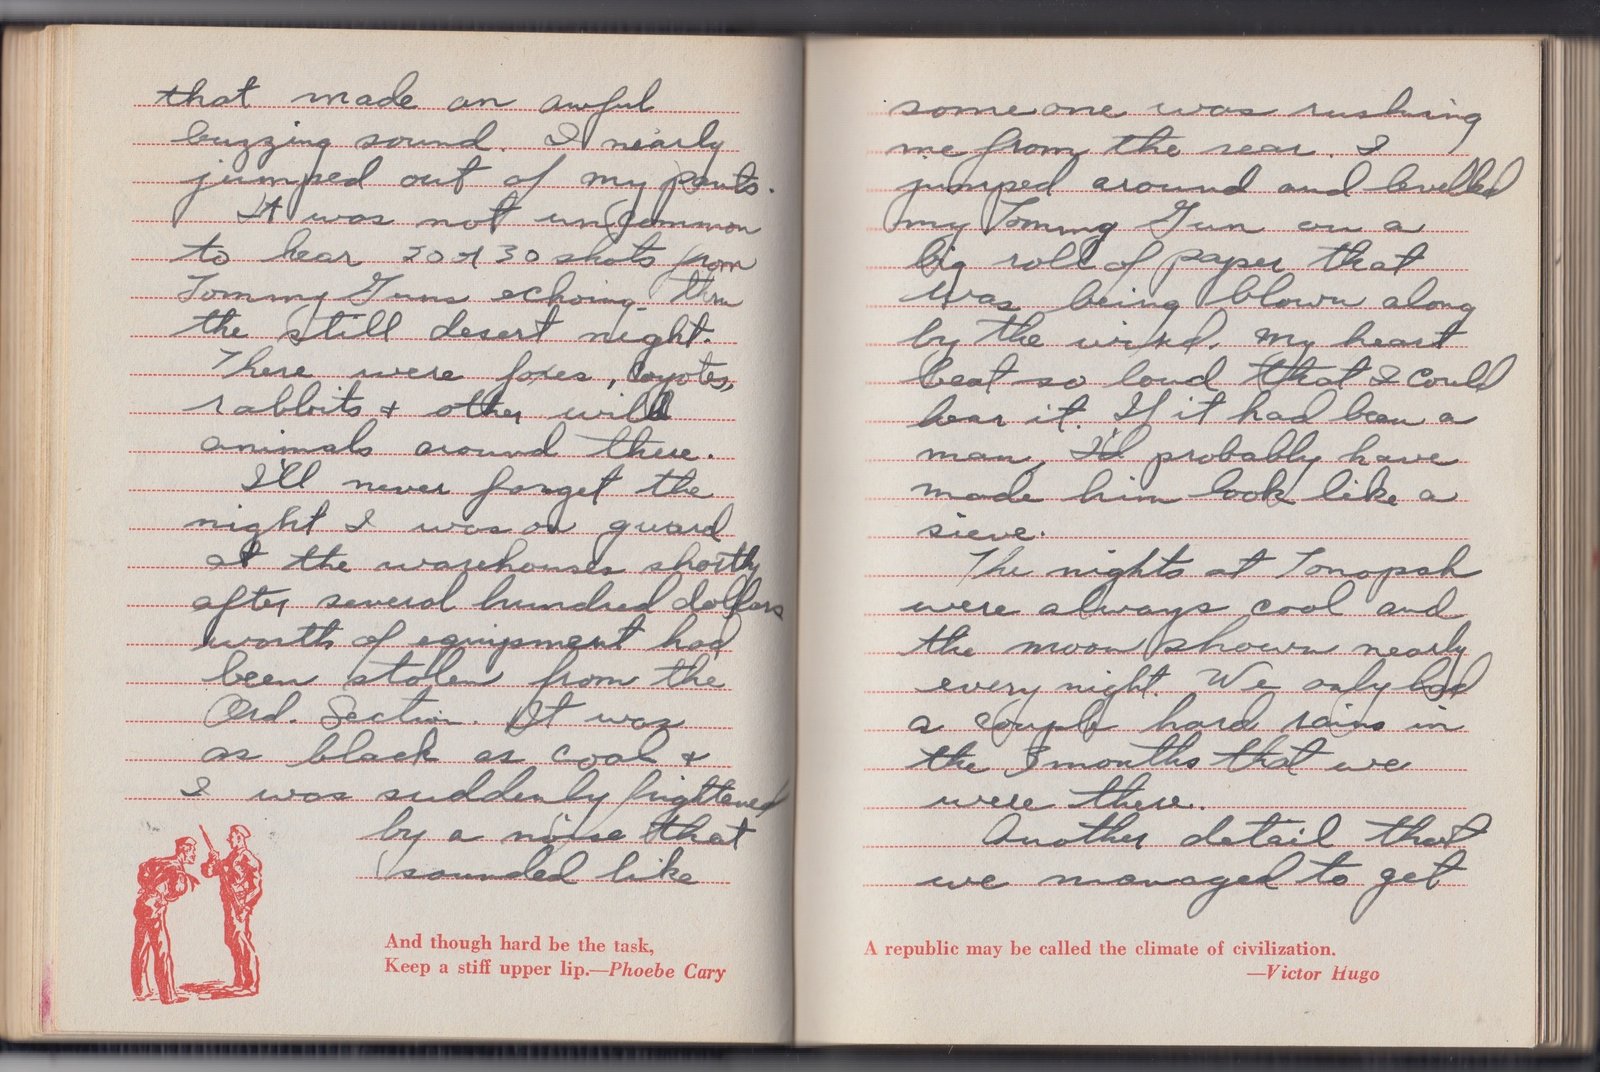 that made an awful
buzzing sound. I nearly
jumped out of my pants.
It was not uncommon
to hear 20 or 30 shots from
Tommy Guns echoing thru
the still desert night.
There were foxes, coyotes,
rabbits & other wild
animals around there.
I'll never forget the
night I was on guard
at the warehouses shortly
after several hundred dollars
worth of equipment had
been stolen from the
Ord. Section. It was
as black as coal &
I was suddenly frightened
by a noise that
sounded like
And though hard be the task,
Keep a stiff upper lip.—Phoebe Cary
someone was rushing
me from the rear. I
jumped around and levelled
my Tommy Gun on a
big roll of paper that
was being blown along
by the wind. My heart
beat so loud that I could
hear it. If it had been a
man, I'd probably have
made him look like a
sieve.
The nights at Tonopah
were always cool and
the moon shown nearly
every night. We only had
a couple hard rains in
the 3 months that we
were there.
Another detail that
we managed to get
A republic may be called the climate of civilization.
—Victor Hugo